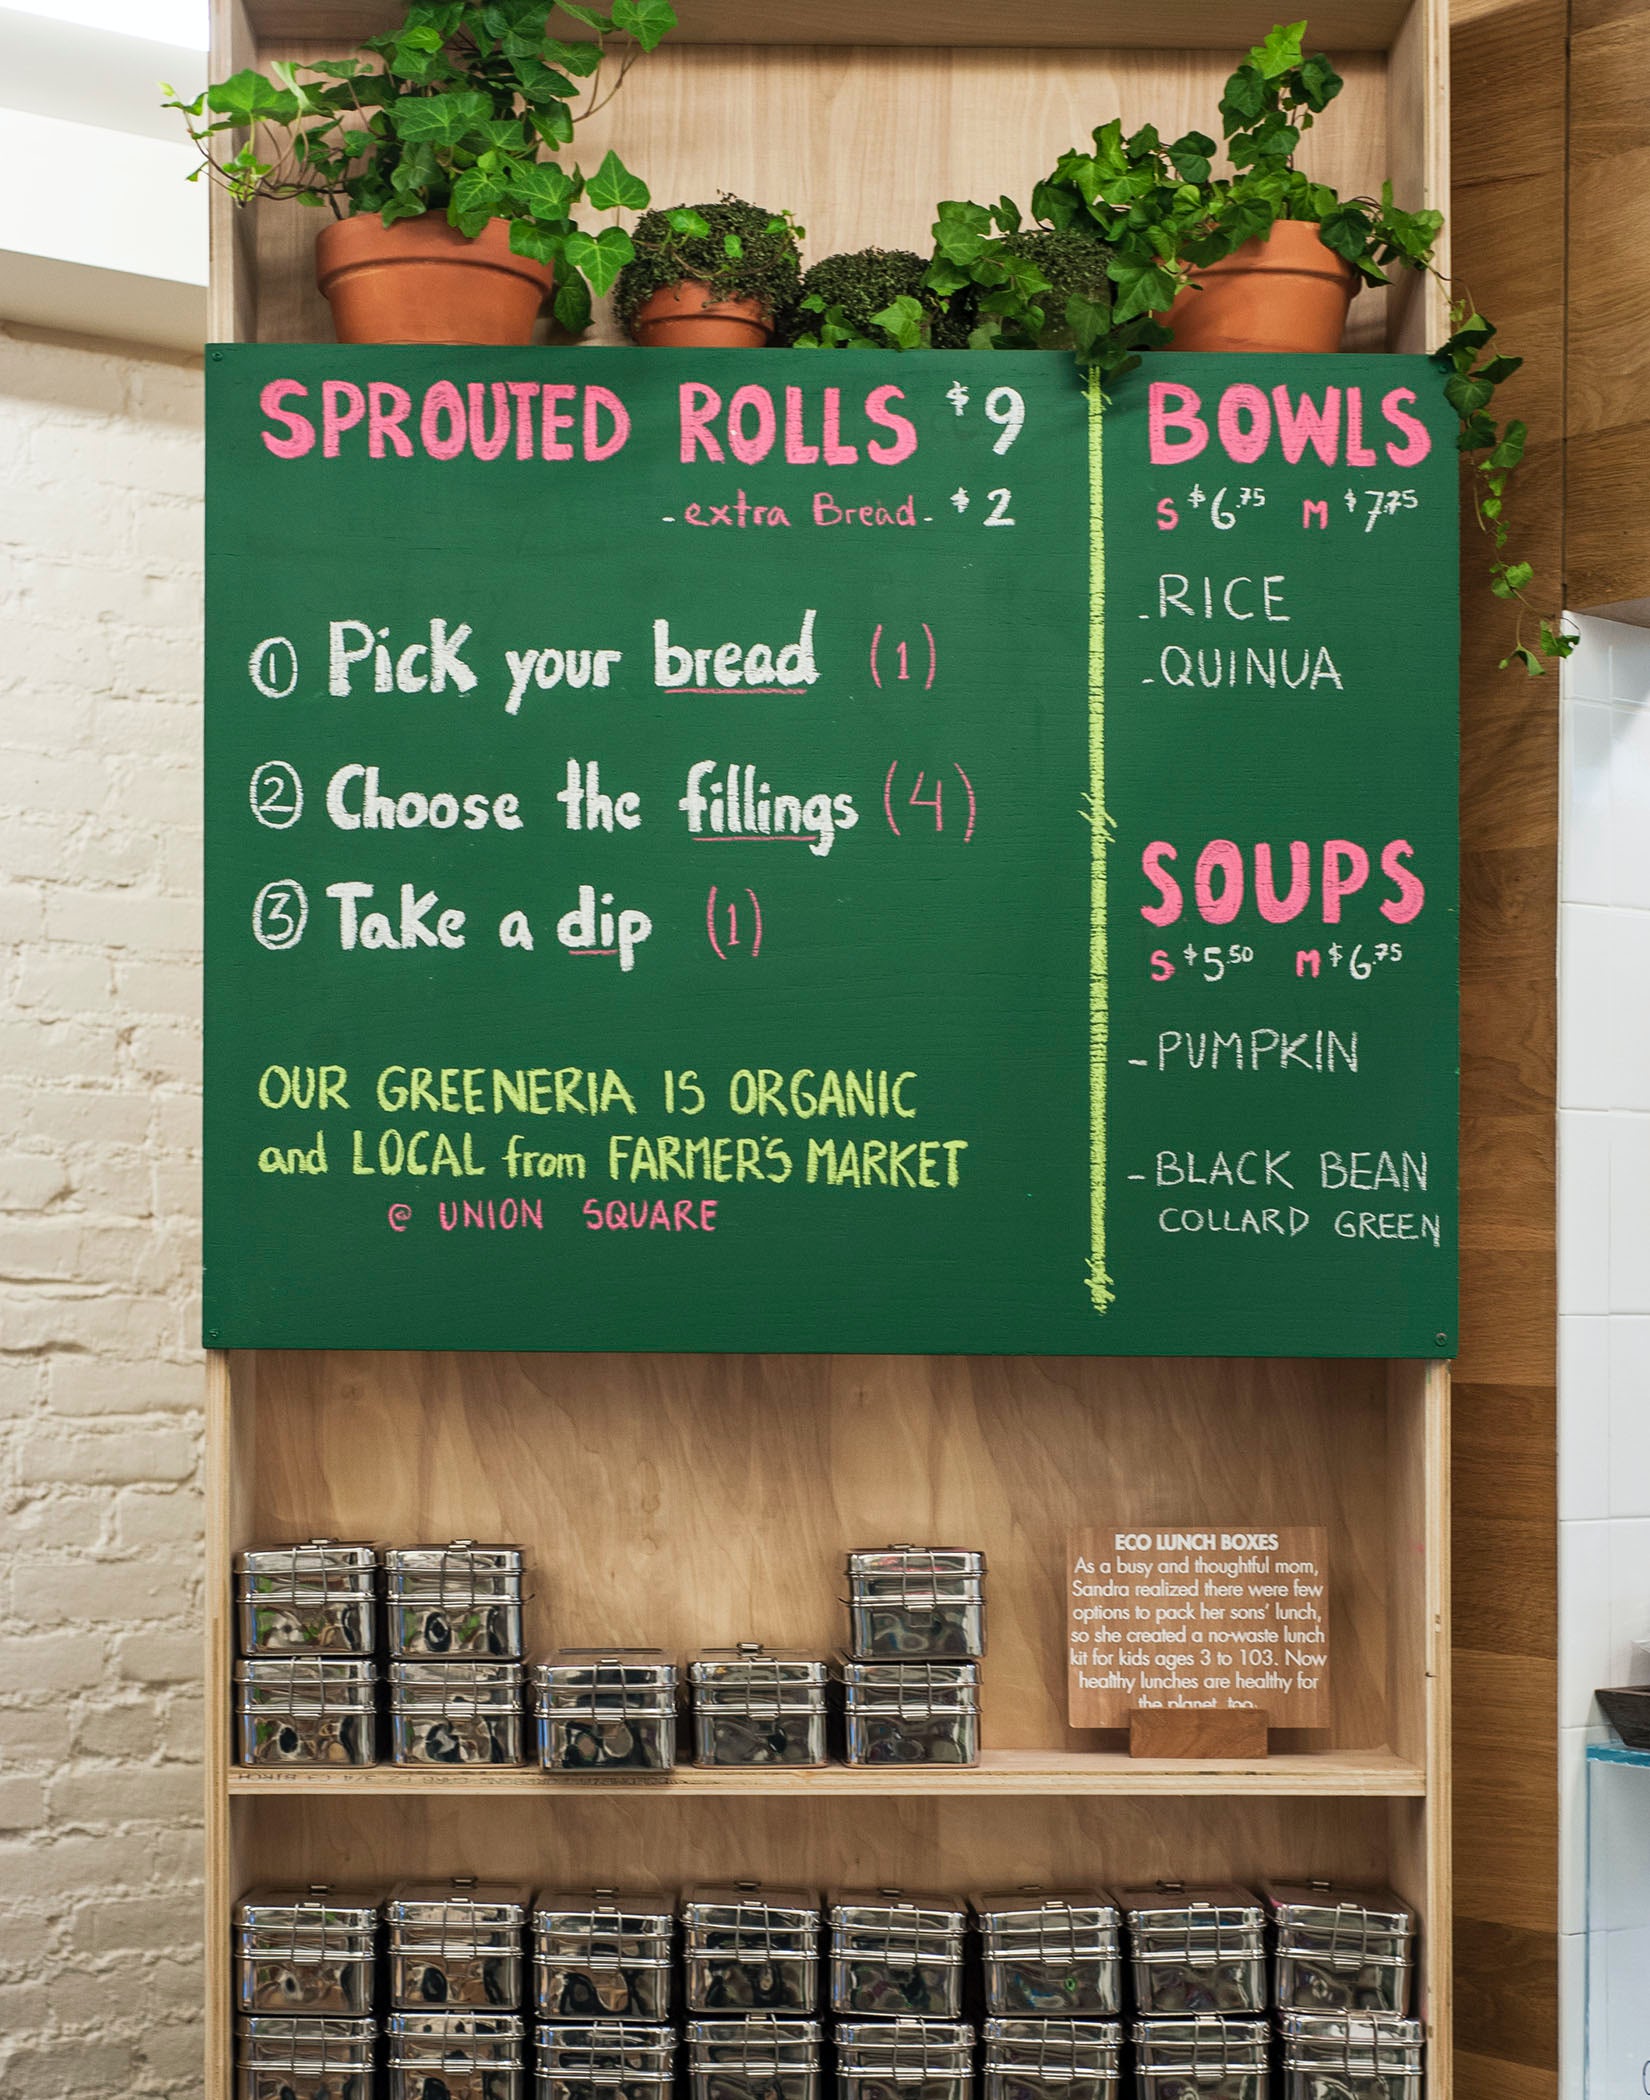 SPROUTED ROLLS $9
- extra Bread - $2
① Pick your bread (1)
② Choose the fillings (4)
③ Take a dip (1)
OUR GREENERIA IS ORGANIC
and LOCAL from FARMER'S MARKET
@ UNION SQUARE
BOWLS
S $6.75 M $7.75
- RICE
- QUINUA
SOUPS
S $5.50 M $6.75
- PUMPKIN
- BLACK BEAN
COLLARD GREEN
ECO LUNCH BOXES
As a busy and thoughtful mom,
Sandra realized there were few
options to pack her sons' lunch,
so she created a no-waste lunch
kit for kids ages 3 to 103. Now
healthy lunches are healthy for
the planet, too.